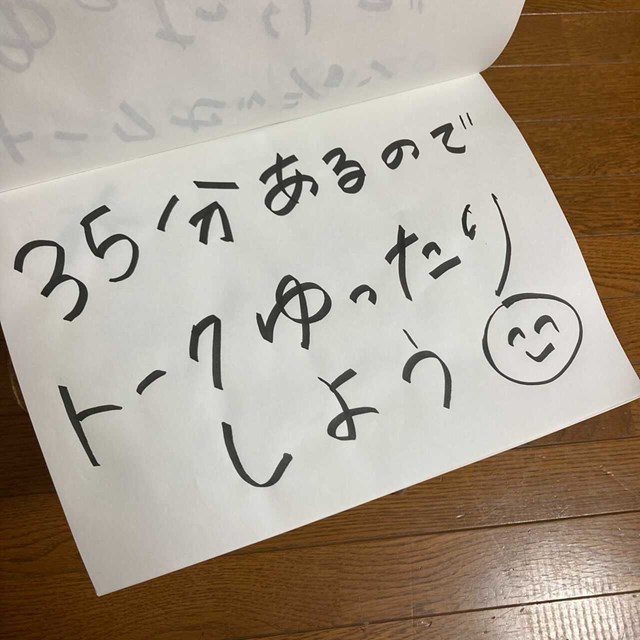 35分あるので
トークゆったり
しよう